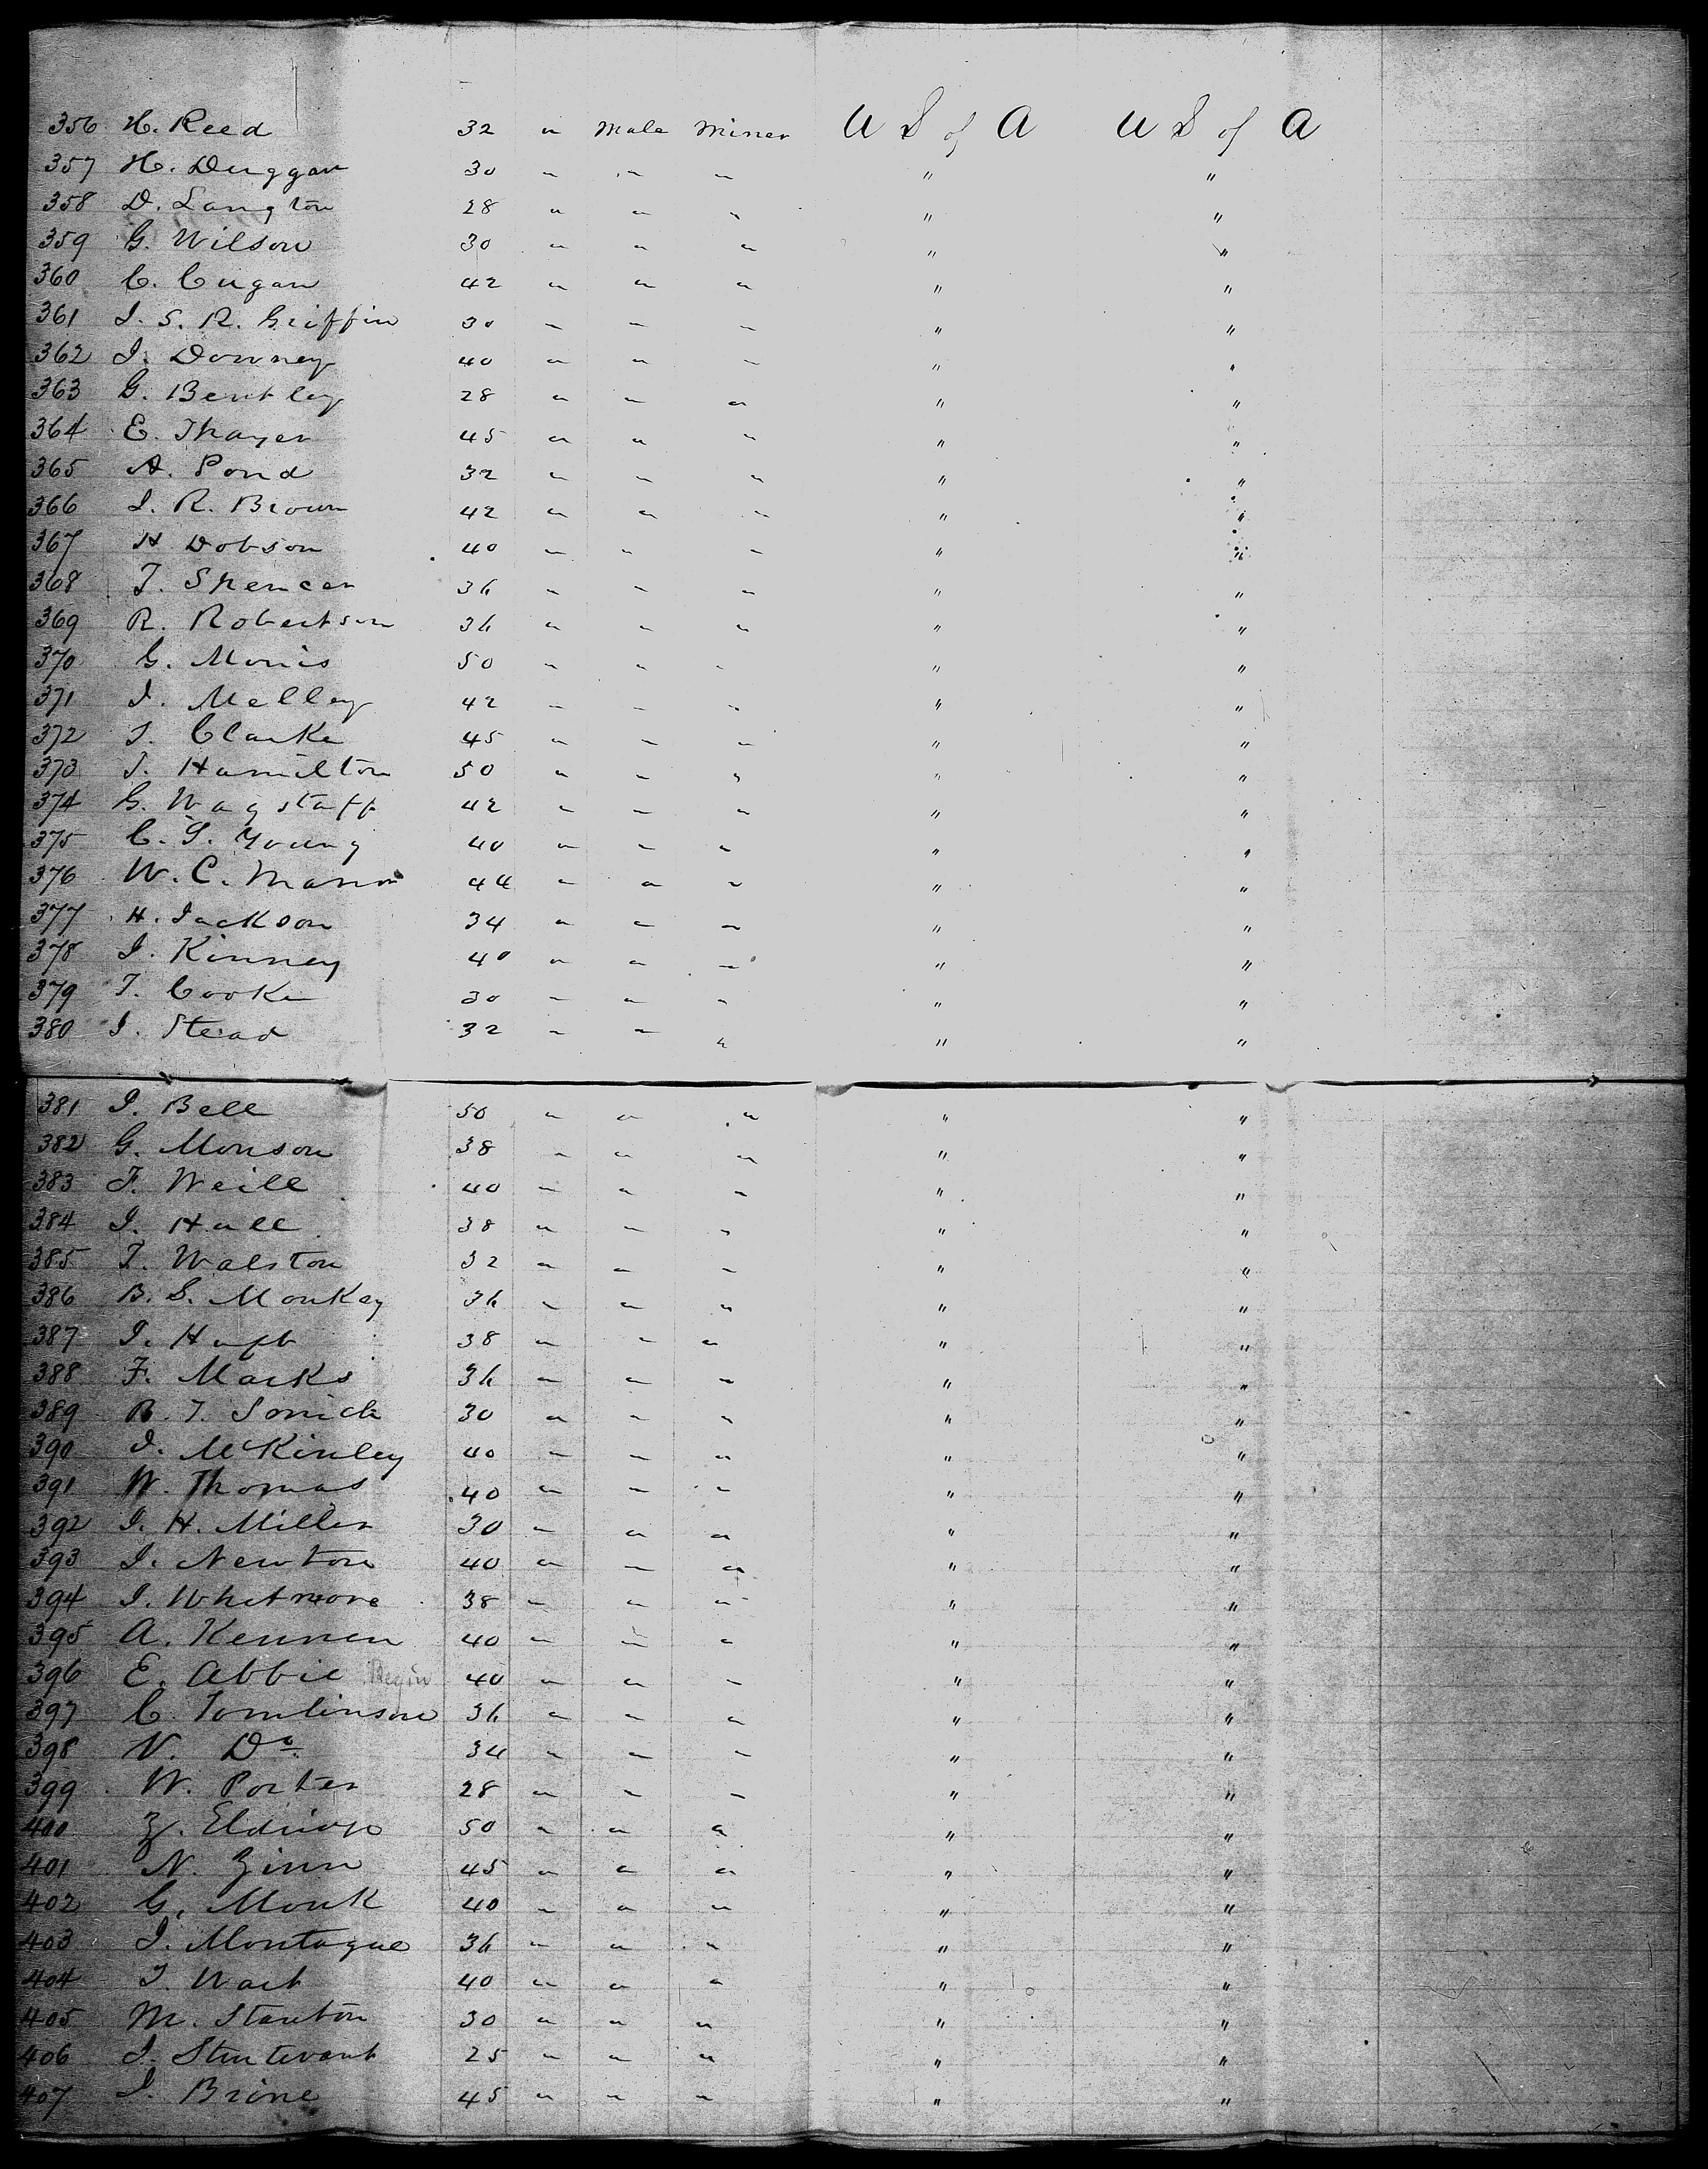 356 H. Reed 32 " Male Miner U S of A U S of A
357 H. Duggan 30 " " " " "
358 D. Langton 28 " " " " "
359 G. Wilson 30 " " " " "
360 C. Cugan 42 " " " " "
361 J. S. R. Griffin 30 " " " " "
362 J. Downey 40 " " " " "
363 G. Bentley 28 " " " " "
364 E. Thayer 45 " " " " "
365 A. Pond 32 " " " " "
366 J. R. Brown 42 " " " " "
367 H Dobson 40 " " " " "
368 T. Spencer 36 " " " " "
369 R. Robertson 36 " " " " "
370 G. Morris 50 " " " " "
371 J. Melley 42 " " " " "
372 T. Clarke 45 " " " " "
373 T. Hamilton 50 " " " " "
374 G. Wagstaff 42 " " " " "
375 C. S. Young 40 " " " " "
376 W. C. Mann 44 " " " " "
377 H. Jackson 34 " " " " "
378 J. Kinney 40 " " " " "
379 T. Cooke 30 " " " " "
380 J. Stead 32 " " " " "
381 J. Bell 50 " " " " "
382 G. Monson 38 " " " " "
383 F. Weill 40 " " " " "
384 J. Hall 38 " " " " "
385 T. Walston 32 " " " " "
386 B. S. Monkey 36 " " " " "
387 J. 38 " " " " "
388 F. Marks 36 " " " " "
389 B. T. 30 " " " " "
390 J. McKinley 40 " " " " "
391 W. Thomas 40 " " " " "
392 J. H. Miller 30 " " " " "
393 J. Newton 40 " " " " "
394 J. Whetmore 38 " " " " "
395 A. Kennen 40 " " " " "
396 E. Abbie Begin 40 " " " " "
397 C. Tomlinson 36 " " " " "
398 N. Do 34 " " " " "
399 W. Porter 28 " " " " "
400 Z. 50 " " " " "
401 N. Zinn 45 " " " " "
402 G. Monk 40 " " " " "
403 J. Montague 36 " " " " "
404 T. 40 " " " " "
405 M. Stanton 30 " " " " "
406 J. Sturtevant 25 " " " " "
407 J. Brine 45 " " " " "